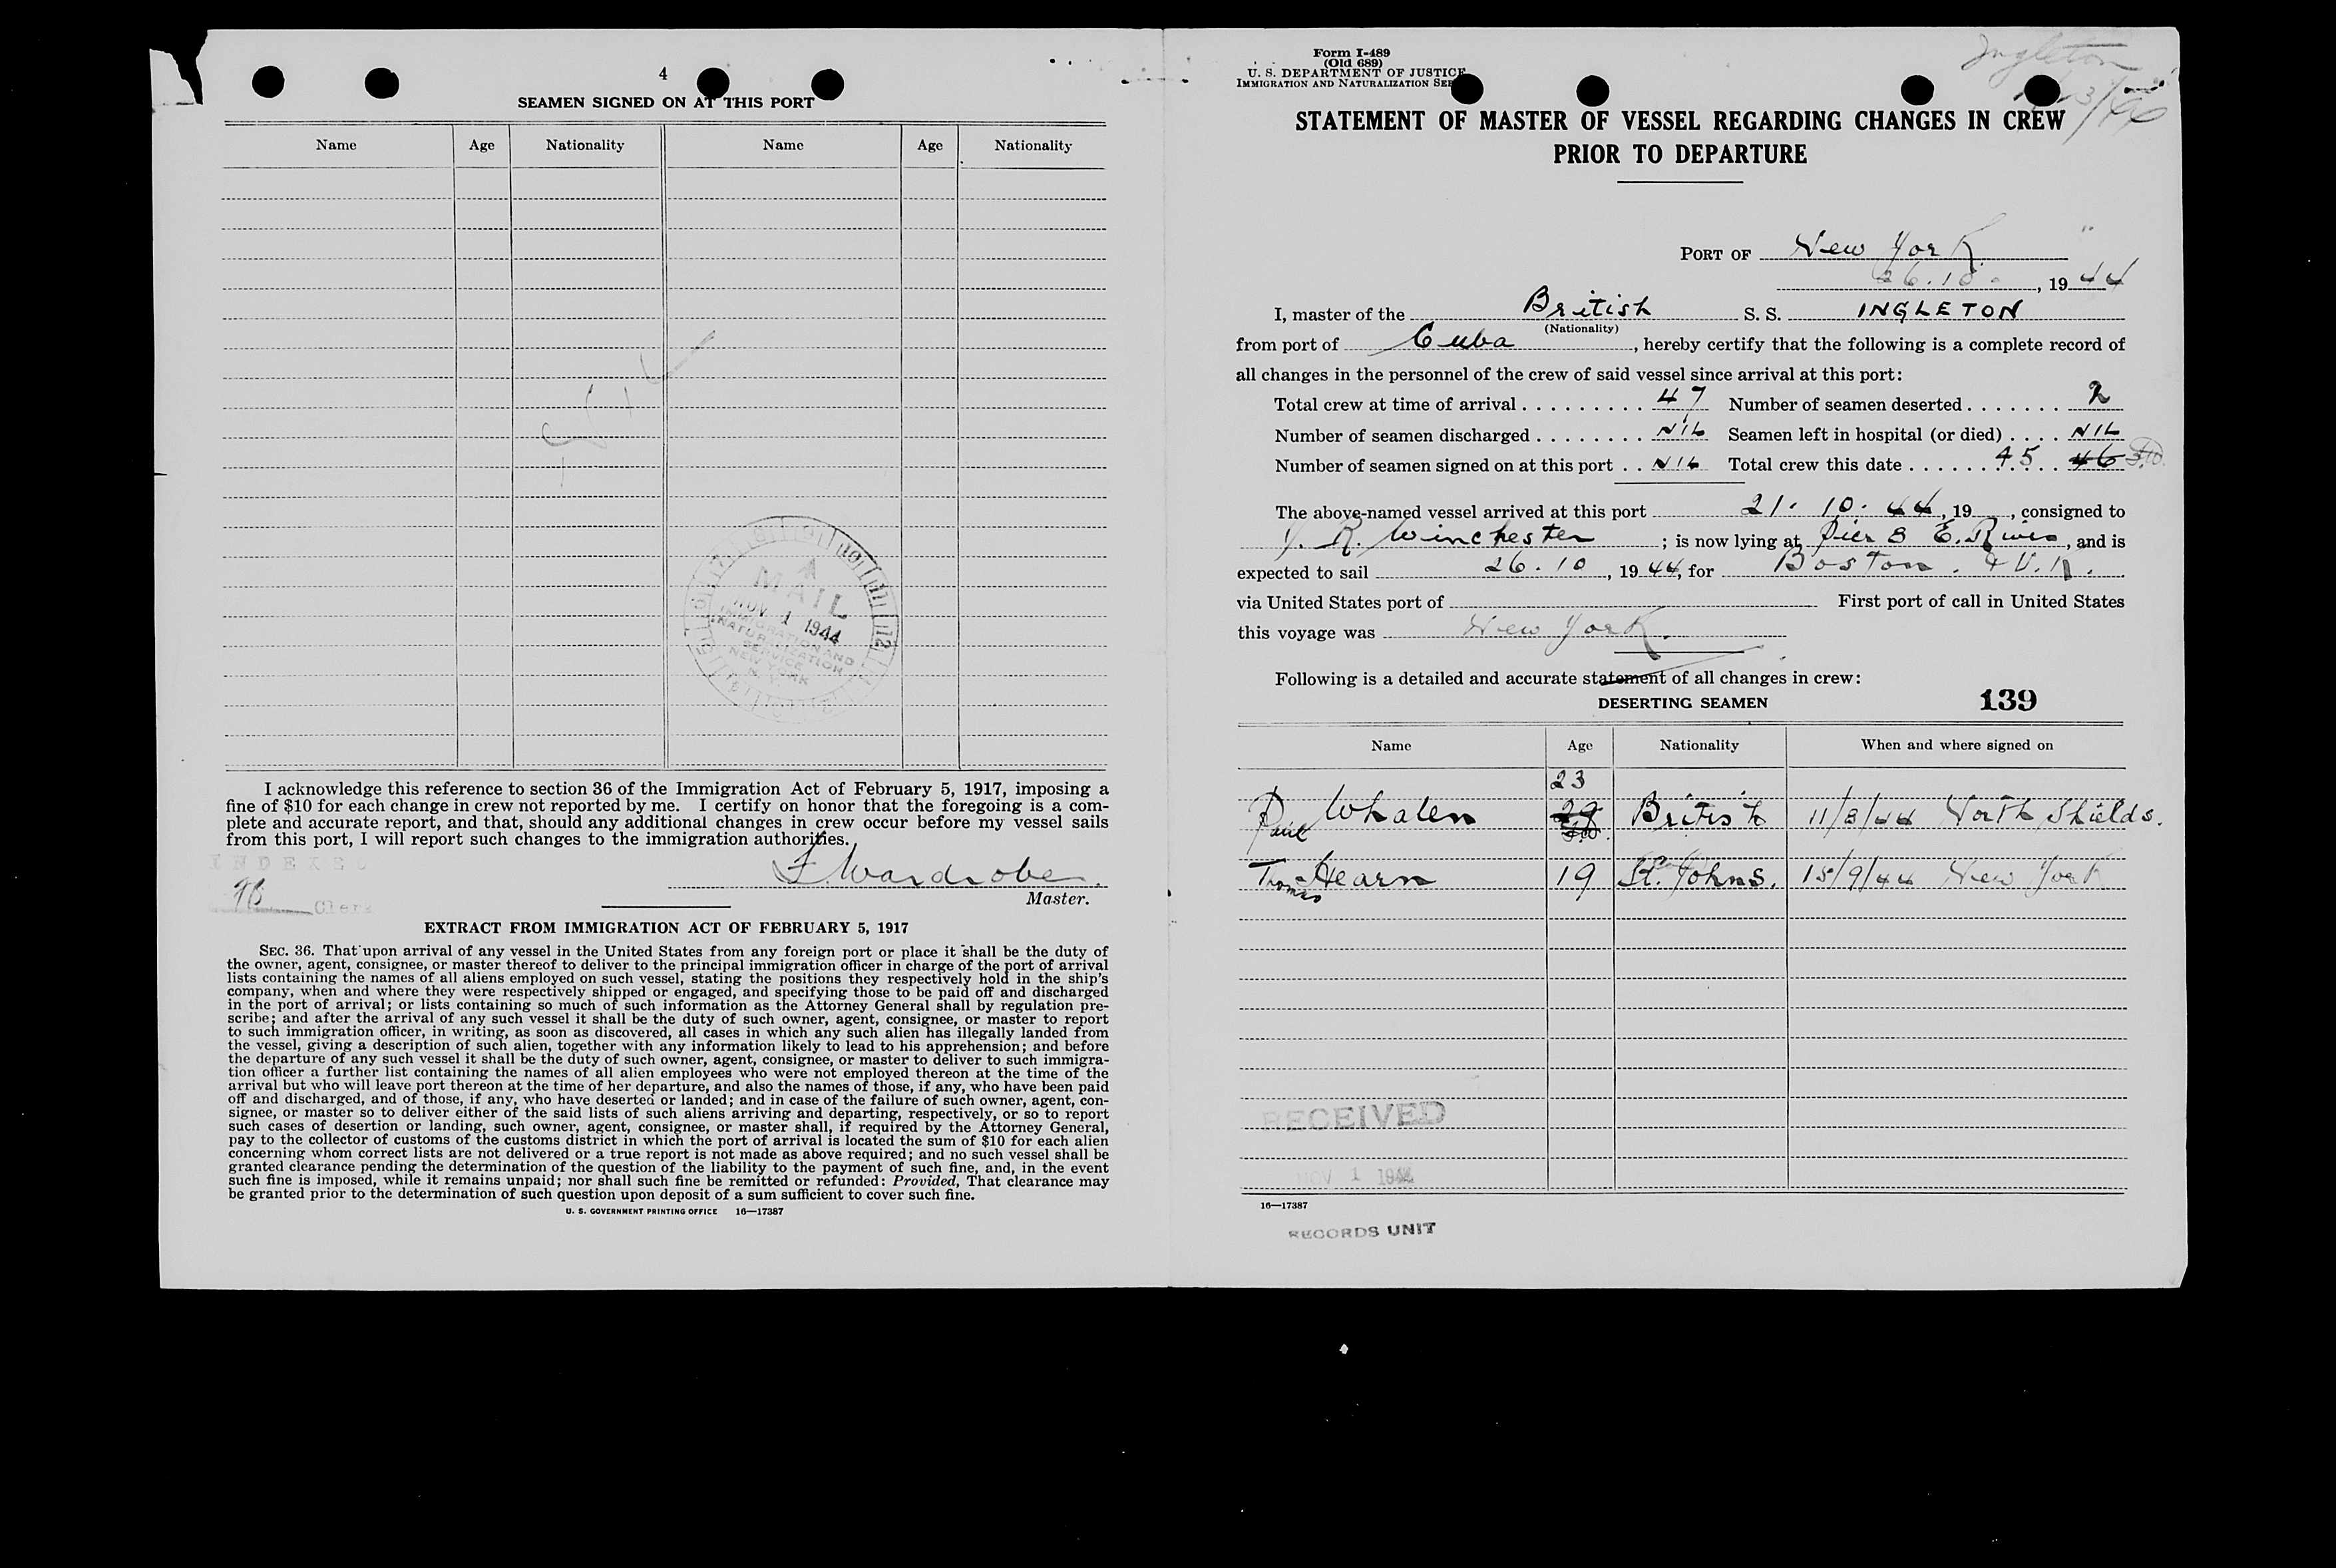 4
SEAMEN SIGNED ON AT THIS PORT
Name Age Nationality Name Age Nationality
MAIL
NOV 1 1944
IMMIGRATION AND
NATURALIZATION
SERVICE
NEW YORK
N. Y.
I acknowledge this reference to section 36 of the Immigration Act of February 5, 1917, imposing a
fine of $10 for each change in crew not reported by me. I certify on honor that the foregoing is a com-
plete and accurate report, and that, should any additional changes in crew occur before my vessel sails
from this port, I will report such changes to the immigration authorities.
INDEXED
Clerk
F. Wardrobe.
Master.
EXTRACT FROM IMMIGRATION ACT OF FEBRUARY 5, 1917
SEC. 36. That upon arrival of any vessel in the United States from any foreign port or place it shall be the duty of
the owner, agent, consignee, or master thereof to deliver to the principal immigration officer in charge of the port of arrival
lists containing the names of all aliens employed on such vessel, stating the positions they respectively hold in the ship's
company, when and where they were respectively shipped or engaged, and specifying those to be paid off and discharged
in the port of arrival; or lists containing so much of such information as the Attorney General shall by regulation pre-
scribe; and after the arrival of any such vessel it shall be the duty of such owner, agent, consignee, or master to report
to such immigration officer, in writing, as soon as discovered, all cases in which any such alien has illegally landed from
the vessel, giving a description of such alien, together with any information likely to lead to his apprehension; and before
the departure of any such vessel it shall be the duty of such owner, agent, consignee, or master to deliver to such immigra-
tion officer a further list containing the names of all alien employees who were not employed thereon at the time of the
arrival but who will leave port thereon at the time of her departure, and also the names of those, if any, who have been paid
off and discharged, and of those, if any, who have deserted or landed; and in case of the failure of such owner, agent, con-
signee, or master so to deliver either of the said lists of such aliens arriving and departing, respectively, or so to report
such cases of desertion or landing, such owner, agent, consignee, or master shall, if required by the Attorney General,
pay to the collector of customs of the customs district in which the port of arrival is located the sum of $10 for each alien
concerning whom correct lists are not delivered or a true report is not made as above required; and no such vessel shall be
granted clearance pending the determination of the question of the liability to the payment of such fine, and, in the event
such fine is imposed, while it remains unpaid; nor shall such fine be remitted or refunded: Provided, That clearance may
be granted prior to the determination of such question upon deposit of a sum sufficient to cover such fine.
U. S. GOVERNMENT PRINTING OFFICE 16—17387
Form I-489
(Old 689)
U. S. DEPARTMENT OF JUSTICE
IMMIGRATION AND NATURALIZATION SER
Ingleton
STATEMENT OF MASTER OF VESSEL REGARDING CHANGES IN CREW
PRIOR TO DEPARTURE
PORT OF New York
26.10. , 1944
I, master of the British S. S. INGLETON
(Nationality)
from port of Cuba, hereby certify that the following is a complete record of
all changes in the personnel of the crew of said vessel since arrival at this port:
Total crew at time of arrival 47 Number of seamen deserted 2
Number of seamen discharged NIL Seamen left in hospital (or died) NIL
Number of seamen signed on at this port NIL Total crew this date 45 46
The above-named vessel arrived at this port 21. 10. 44, 19 , consigned to
J. R. Winchester ; is now lying at Pier 8 E. River, and is
expected to sail 26.10, 1944, for Boston. & U.K.
via United States port of First port of call in United States
this voyage was New York.
Following is a detailed and accurate statement of all changes in crew:
DESERTING SEAMEN 139
Name Age Nationality When and where signed on
23
Paul Whalen 29 British 11/8/44 North Shields.
Thomas Hearn 19 St. Johns. 15/9/44 New York
RECEIVED
NOV 1 1944
16—17387
RECORDS UNIT